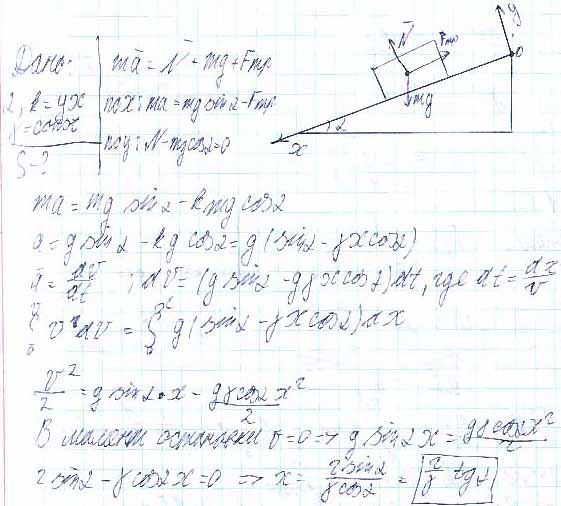 Дано:
α, k = γx
γ = const
S - ?
ma̅ = N̅ + mg + Fтр
по x: ma = mg sinα - Fтр
по y: N - mg cosα = 0
N̅
Fтр
mg
y
0
x
α
ma = mg sinα - kmg cosα
a = g sinα - kg cosα = g(sinα - γx cosα)
a̅ = dv̅/dt ; dv = (g sinα - gγx cosα)dt, где dt = dx/v
∫₀ᵛ v dv = ∫₀ˣ g(sinα - γx cosα)dx
v²/2 = g sinα·x - gγcosα x²/2
В момент остановки v = 0 => g sinα x = gγcosα x²/2
2 sinα - γcosα x = 0 => x = 2 sinα/γcosα = 2/γ tgα